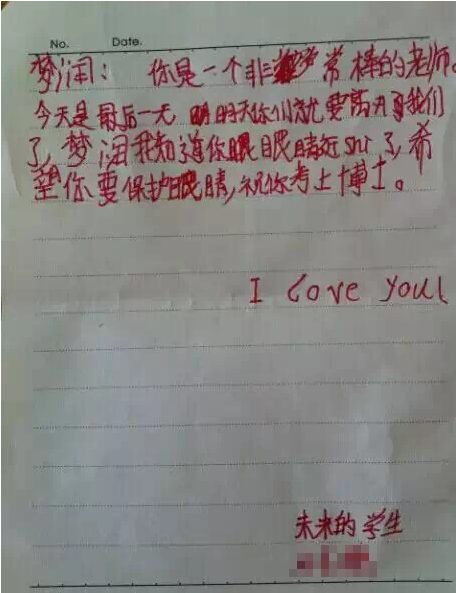 No. Date.
梦润： 你是一个非常棒的老师。
今天是最后一天 明明天你们就要离开了我们
了，梦润我知道你眼眼睛近shi了，希
望你要保护眼睛，祝你考上博士。
I Love you!
未来的学生